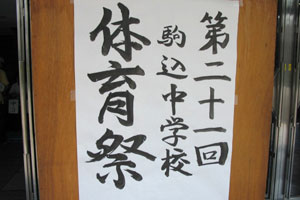 第二十一回
駒込中学校
体育祭